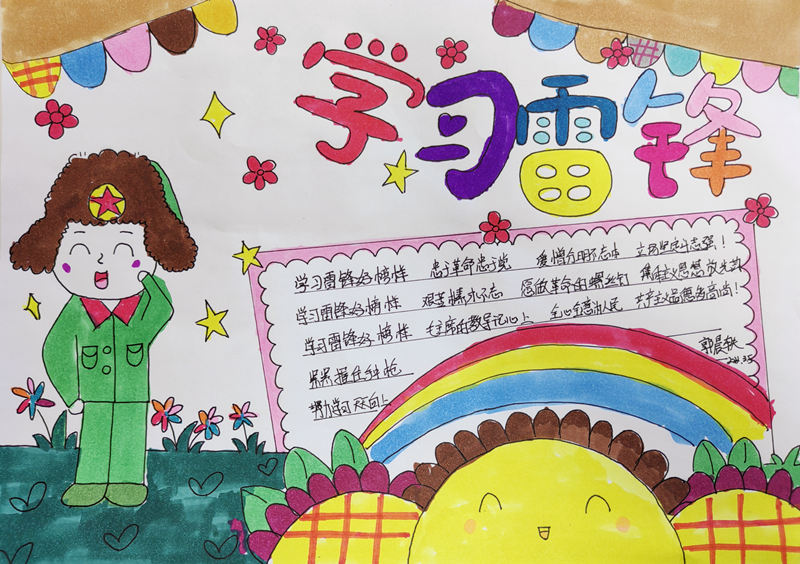 学习雷锋
学习雷锋好榜样 忠于革命忠于党 爱憎分明不忘本 立场坚定斗志强!
学习雷锋好榜样 艰苦朴素永不忘 愿做革命的螺丝钉 集体主义思想放光芒
学习雷锋好榜样 毛主席的教导记心上 全心全意为人民 共产主义品德多高尚!
紧握住钢枪
努力学习 天天向上